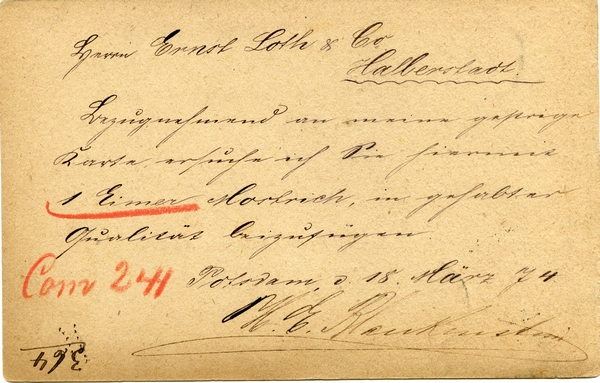 Herrn Ernst Loth & Co
Halberstadt.
Bezugnehmend an meine gestrige
Karte ersuche ich Sie hiermit
1 Eimer Mostrich, in gehabter
Qualität beizufügen
Com 241 Potsdam, d 18. März 74
H. C.
364